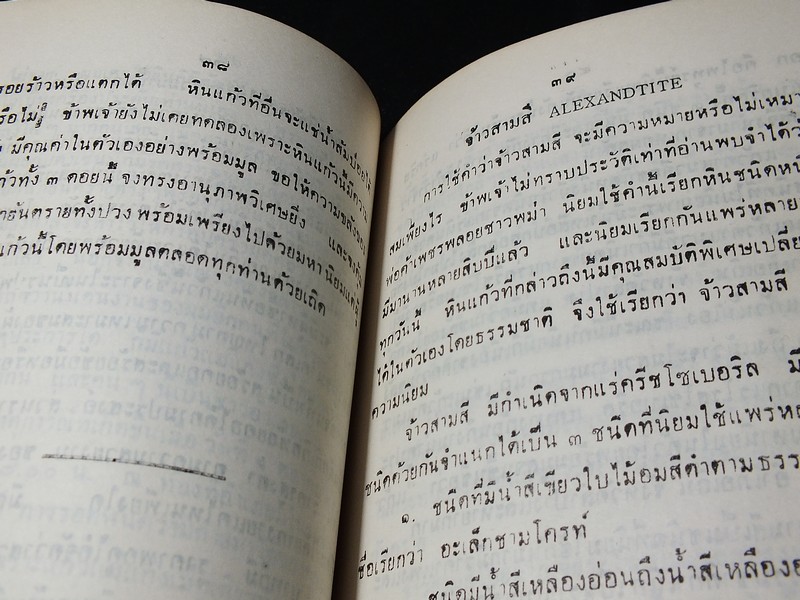 ๓๘
รอยร้าวหรือแตกได้ หินแก้วที่อื่นจะแช่น้ำส้มป่อยได้
หรือไม่รู้ ข้าพเจ้ายังไม่เคยทดลองเพราะหินแก้วนี้มีความ
มีคุณค่าในตัวเองอย่างพร้อมมูล ขอให้ความขลัง
แก้วทั้ง ๓ ดอยนี้ จงทรงอานุภาพวิเศษยิ่ง และจง
ภยันตรายทั้งปวง พร้อมเพรียงไปด้วยมหานิยมแด่ผู้
แก้วนี้โดยพร้อมมูลตลอดทุกท่านด้วยเถิด
๓๙
จ้าวสามสี ALEXANDTITE
การใช้คำว่าจ้าวสามสี จะมีความหมายหรือไม่เหมา
สมเพียงไร ข้าพเจ้าไม่ทราบประวัติเท่าที่อ่านพบจำได้ว
พ่อค้าเพชรพลอยชาวพม่า นิยมใช้คำนี้เรียกหินชนิดหน
มีมานานหลายสิบปีแล้ว และนิยมเรียกกันแพร่หลาย
ทุกวันนี้ หินแก้วที่กล่าวถึงนี้มีคุณสมบัติพิเศษเปลี่ย
ได้ในตัวเองโดยธรรมชาติ จึงใช้เรียกว่า จ้าวสามสี
ความนิยม
จ้าวสามสี มีกำเนิดจากแร่ครีซโซเบอริล มี
ชนิดด้วยกันจำแนกได้เป็น ๓ ชนิดที่นิยมใช้แพร่ห
๑. ชนิดที่มีน้ำสีเขียวใบไม้อมสีดำตามธรร
ชื่อเรียกว่า อะเล็กซามโครท์
ชนิดมีน้ำสีเหลืองอ่อนถึงน้ำสีเหลือง